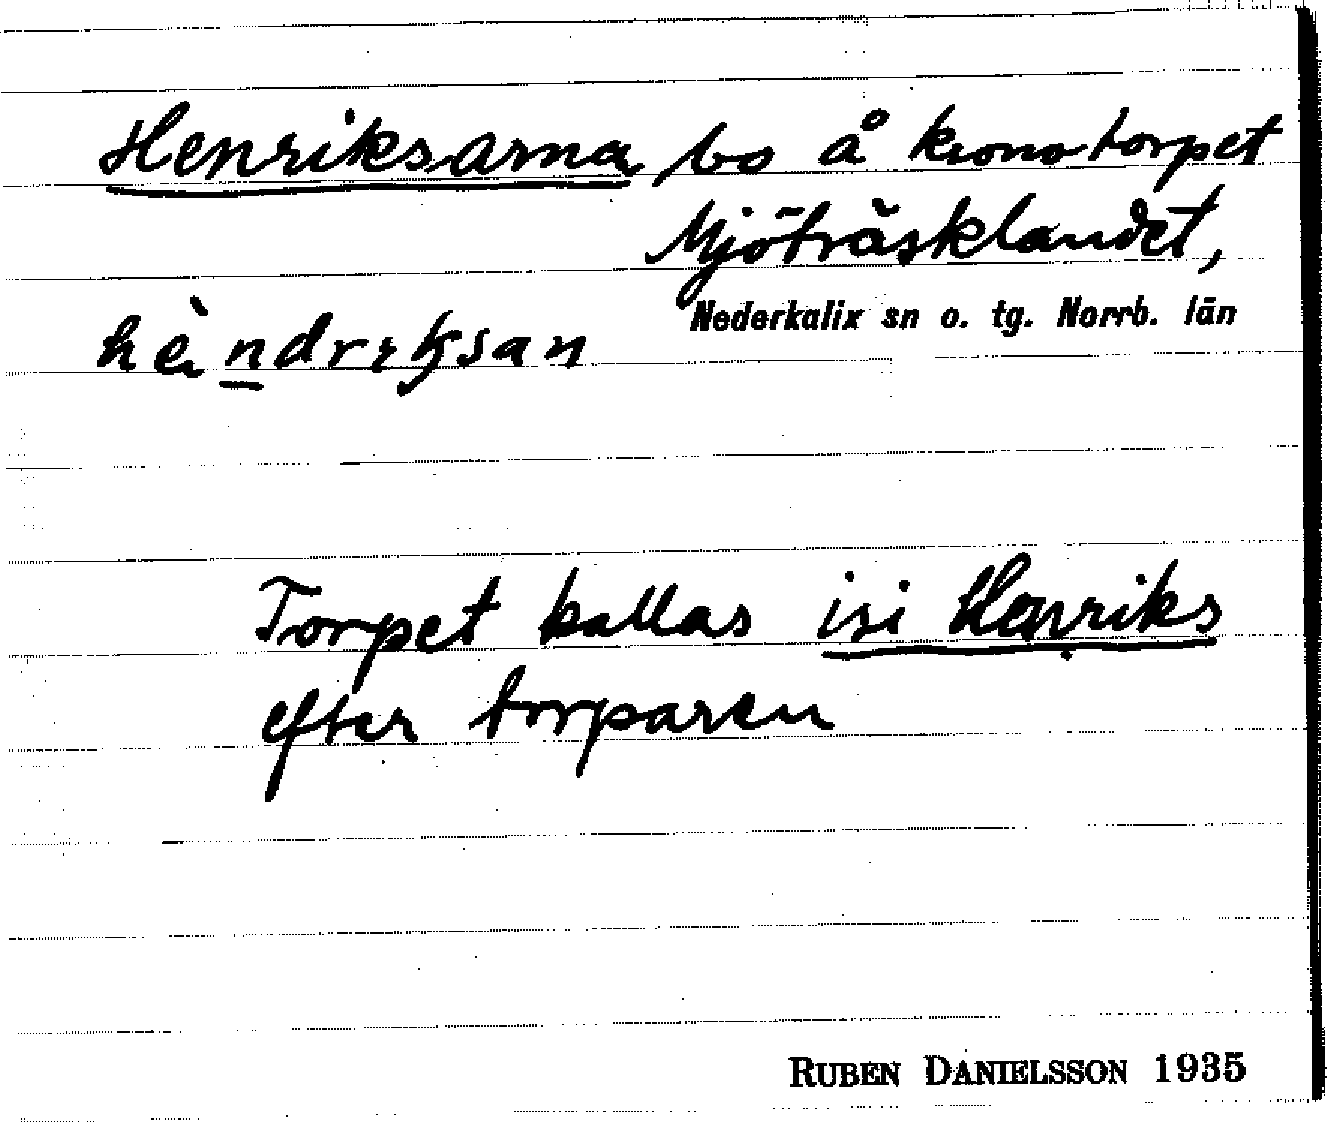 Henriksarna bo å kronotorpet
Mjöträsklandet,
Nederkalix sn o. tg. Norrb. län
hèndrıksan
Torpet kallas isi Henriks
efter torparen
RUBEN DANIELSSON 1935